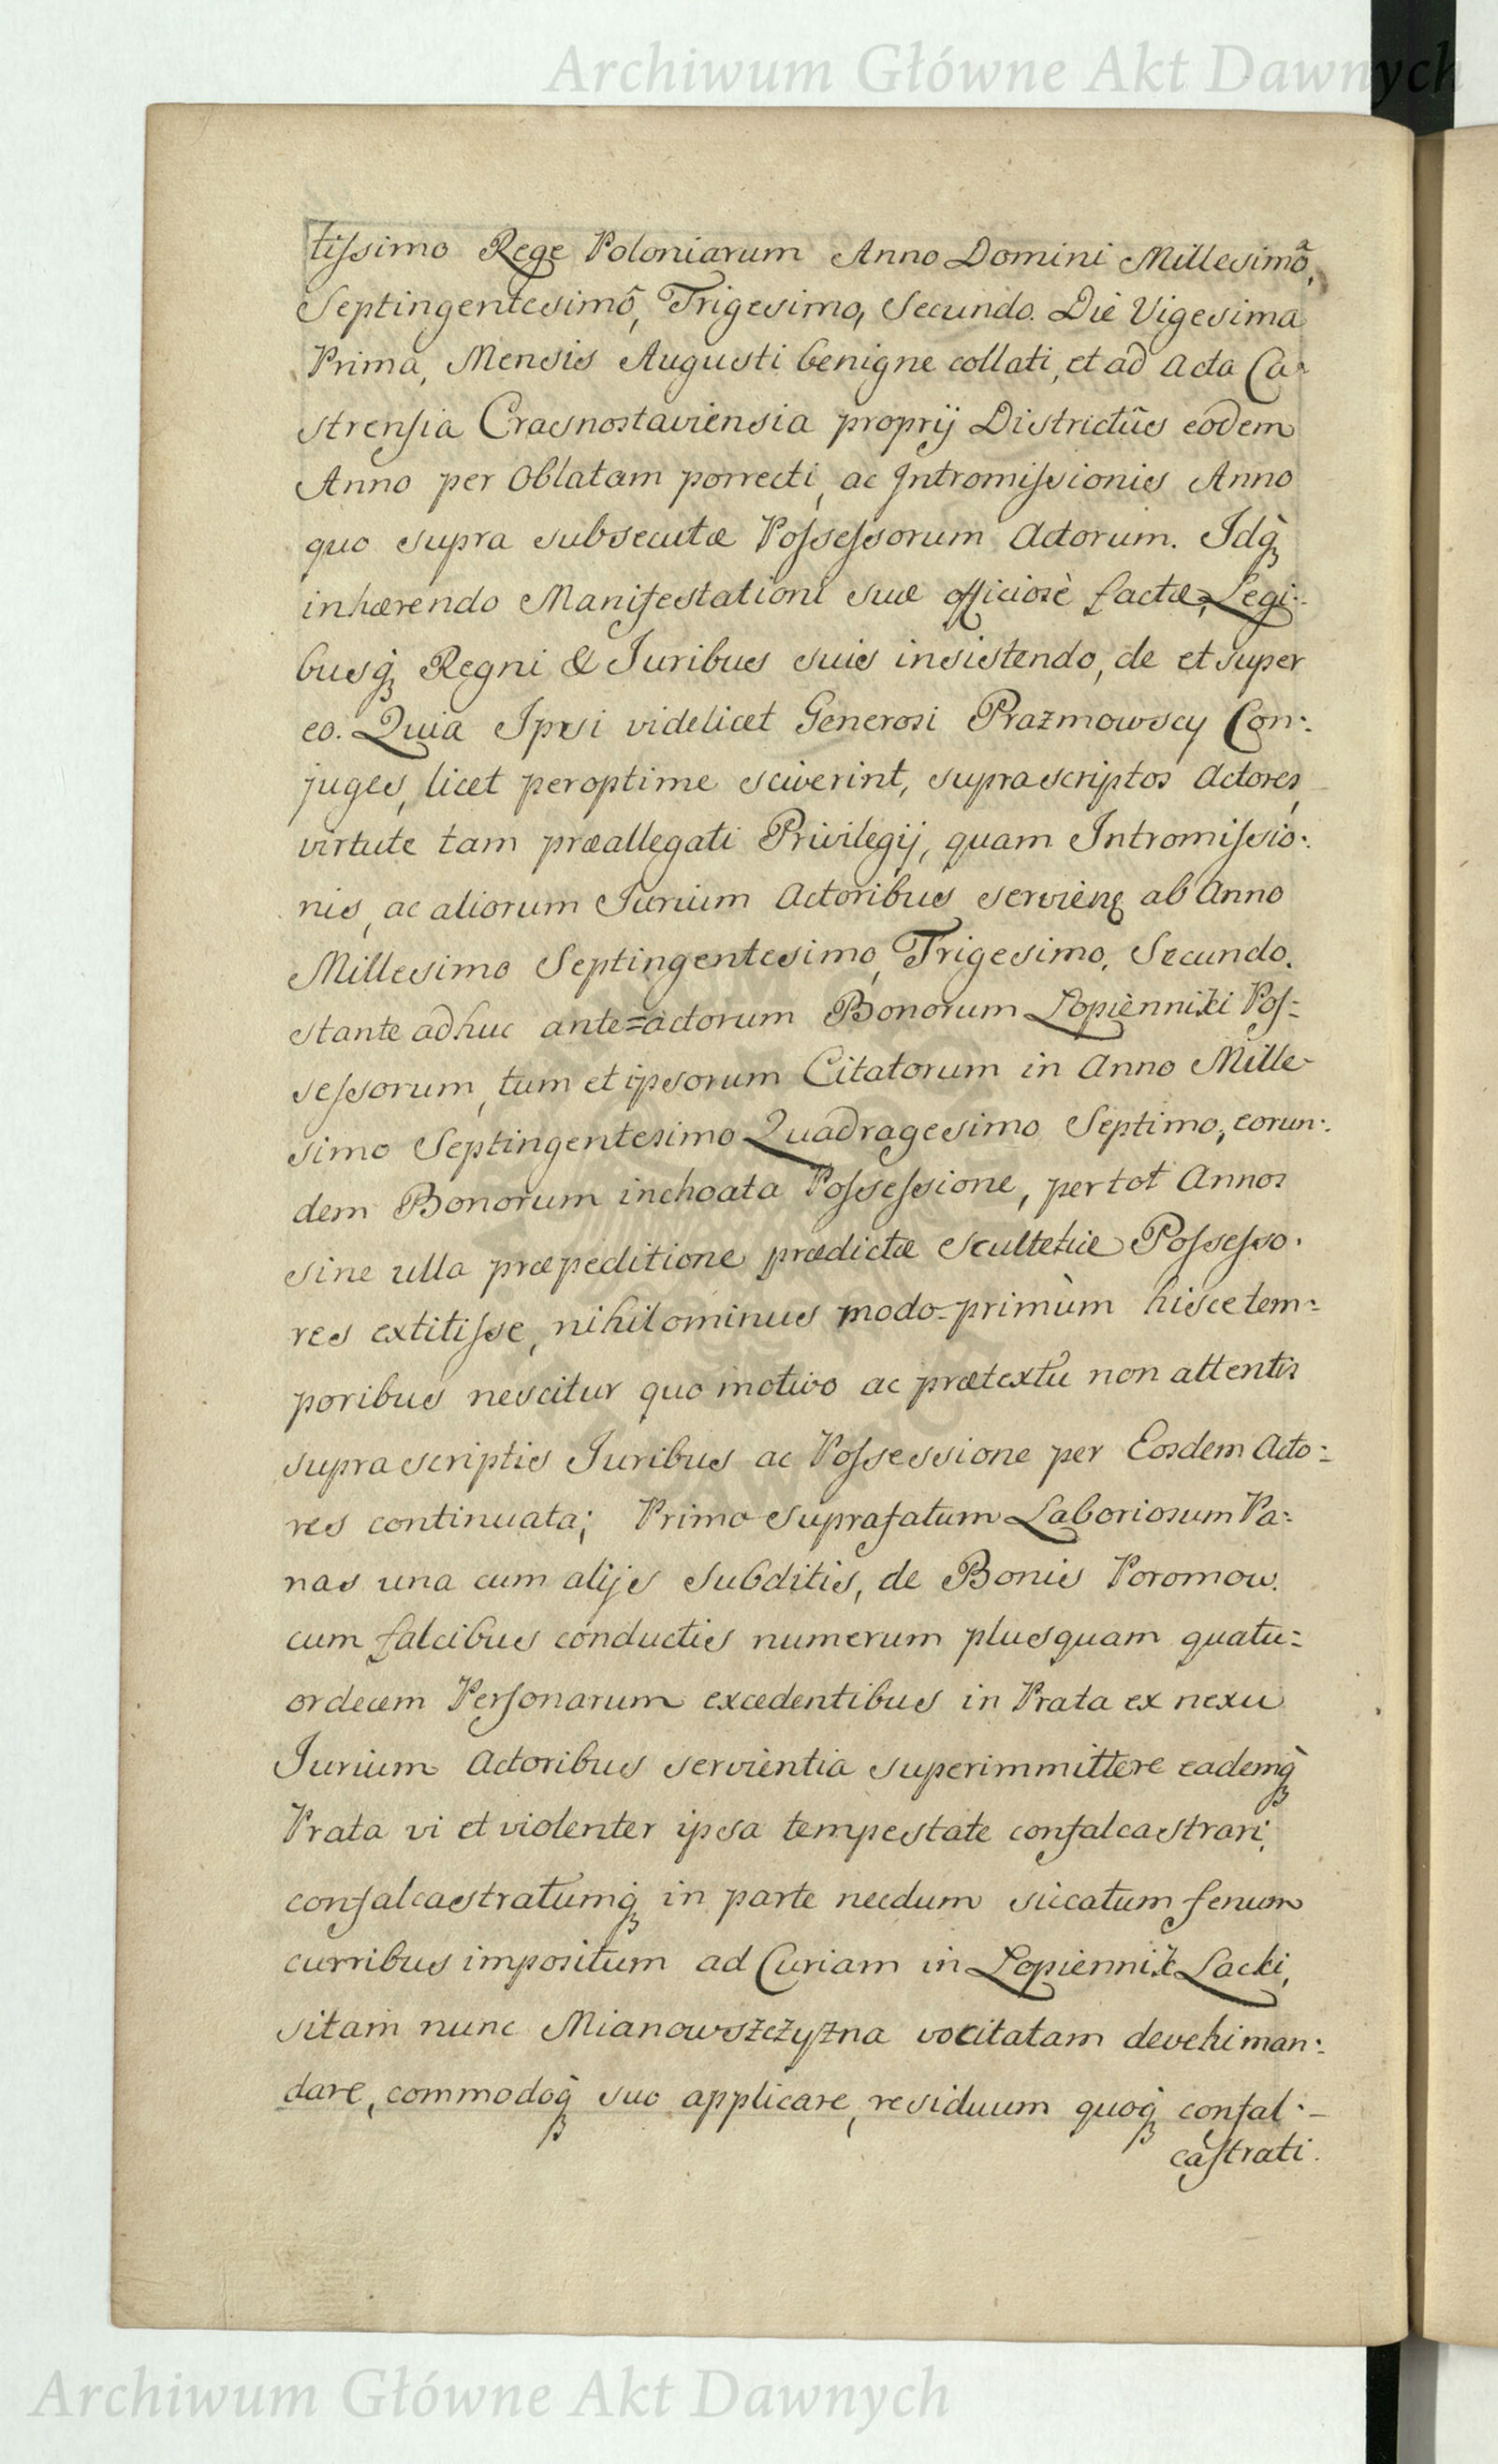 Archiwum Główne Akt Dawnych
tissimo Rege Poloniarum Anno Domini Millesimô,
Septingentesimô, Trigesimo, Secundo. Die Vigesima
Prima, Mensis Augusti benigne collati, et ad Acta Ca-
strensia Crasnostaviensia proprij Districtûs eodem
Anno per Oblatam porrecti, ac Intromissionis Anno
quo supra subsecutæ Possessorum Actorum. Idq̀
inhærendo Manifestationi suæ officiosè factæ, Legi-
busq̀ Regni & Juribus suis insistendo, de et super
eo. Quia Ipsi videlicet Generosi Prazmowscy Con:
juges, licet peroptime sciverint, suprascriptos Actores,
virtute tam præallegati Privilegij, quam Intromissio:
nis, ac aliorum Jurium Actoribus servienꝫ ab Anno
Millesimo Septingentesimo, Trigesimo, Secundo.
stante adhuc ante=actorum Bonorum Łopienniki Pos=
sessorum, tum et ipsorum Citatorum in Anno Mille-
simo Septingentesimo Quadragesimo Septimo, eorun:
dem Bonorum inchoata Possessione, per tot Annos
sine ulla præpeditione prædictæ Scultetiæ Possesso.
res extitisse, nihilominus modo-primùm hisce tem=
poribus nescitur quo motivo ac prætextû non attentis
suprascriptis Juribus ac Possessione per Eosdem Acto=
res continuata; Primo Suprafatum Laboriosum Pa=
nas una cum alijs Subditis, de Bonis Poromow.
cum falcibus conductis numerum plusquam quatu=
ordecem Personarum excedentibus in Prata ex nexu
Jurium Actoribus servientia superimmittere eademq̀
Prata vi et violenter ipsa tempestate confalcastrari,
confalcastratumq̀ in parte necdum siccatum fenum
curribus impositum ad Curiam in Łopiennik Lacki,
sitam nunc Mianowszczyzna vocitatam devehi man:
dare, commodoq̀ suo applicare, residuum quoq̀ confal:-
castrati.
Archiwum Główne Akt Dawnych